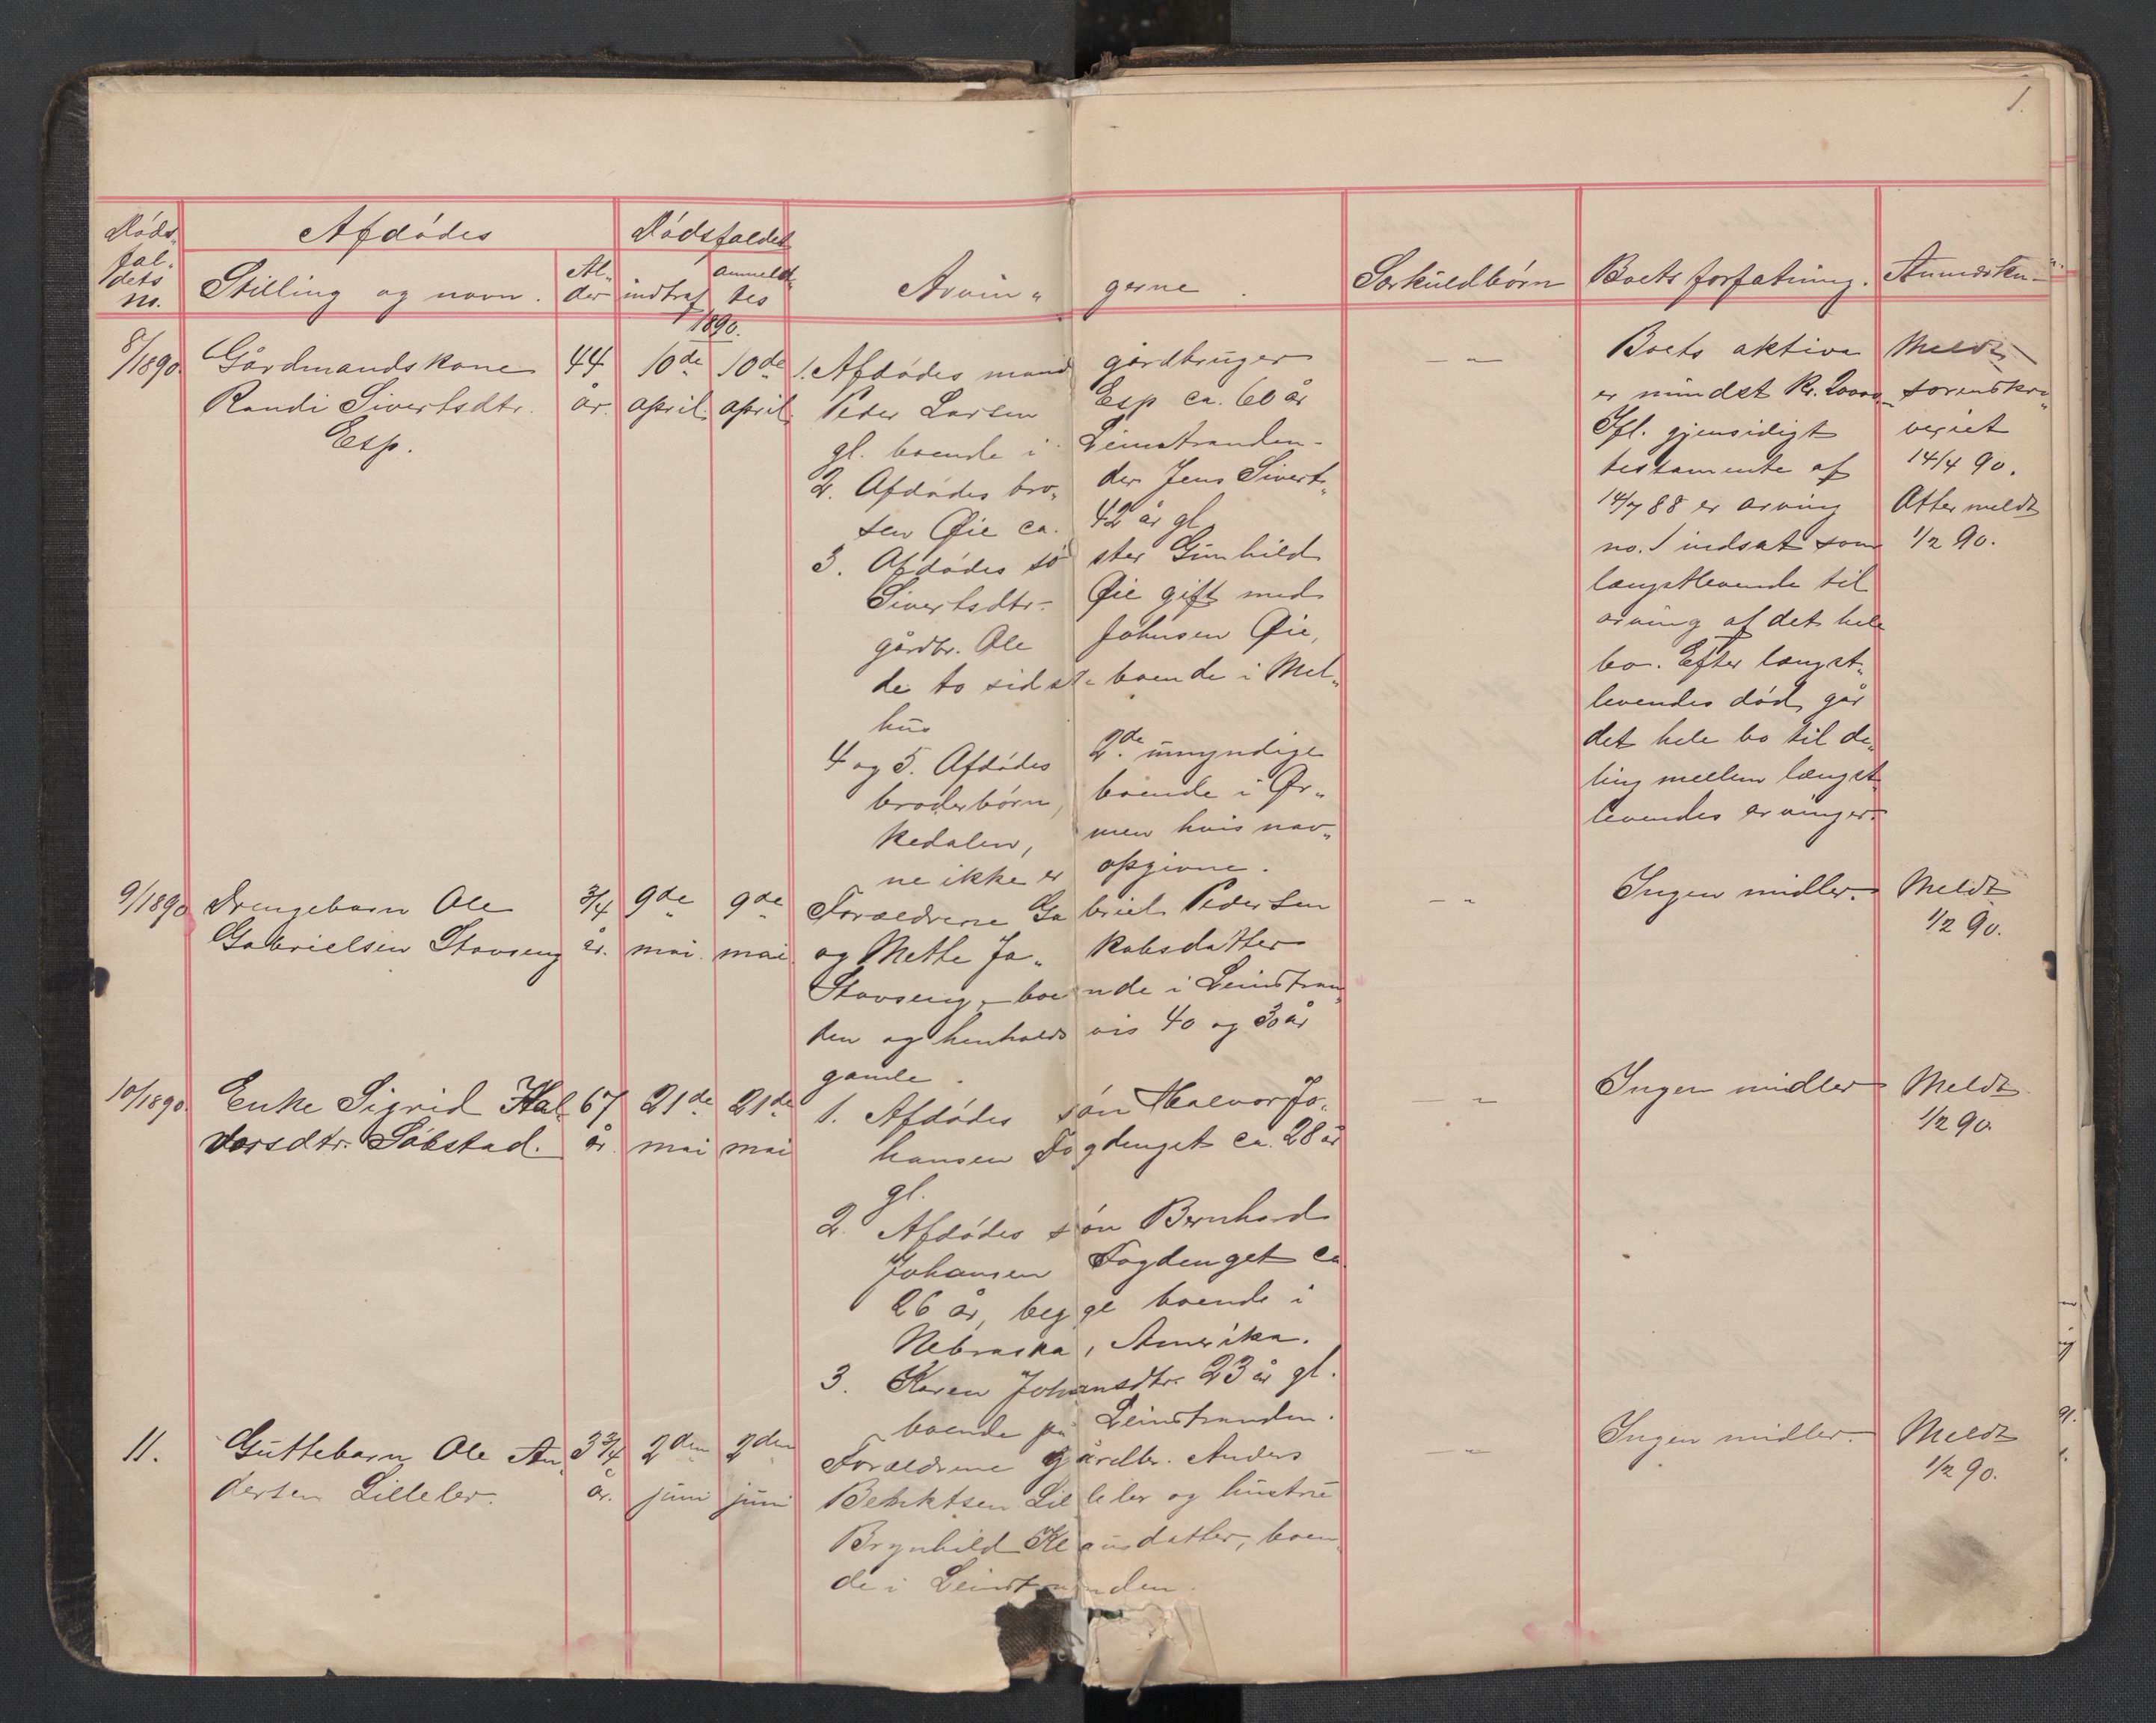 1.
Døds„
fal„
dets
no.
Afdødes
Stilling og navn.
Al„
der
Dødsfaldet
indtraf
anmeldt„
tes
Arvin„ gerne.
Særkuldbørn
Boets forfatning.
Anmærkn„
1890.
8/1890.
Gårdmandskone
Randi Sivertsdtr.
Esp.
44
år.
10de
april.
10de
april.
1. Afdødes mand gårdbruger
Peder Larsen Esp ca. 60 år
gl. boende i Leinstranden.
2. Afdødes bro„ der Jens Sivert„
sen Øie ca. 42 år gl.
3. Afdødes sø ster Gunhild
Sivertsdtr. Øie gift med
gårdbr. Ole Johnsen Øie,
de to sidste boende i Mel„
hus
4 og 5. Afdødes 2de umyndige
broderbørn, boende i Ør„
kedalen, men hvis nav„
ne ikke er opgivne.
— „ —
Boets aktiva
er mindst kr. 20000.
Ifl. gjensidigt
testamente af
14/7 88 er arving
no. 1 indsat som
længstlevende til
arving af det hele
bo. Efter længst„
levendes død går
det hele bo til de„
ling mellem længst„
levendes arvinger.
Meldt
sorenskri„
veriet
14/4 90.
Atter meldt
1/2 90.
9/1890
Drengebarn Ole
Gabrielsen Stavseng
3/4
år.
9de
mai.
9de
mai.
Forældrene Gabriel Pedersen
og Mette Ja„ kobsdatter
Stavseng, boende i Leinstran„
den og henholdsvis 40 og 30 år
gamle.
— „
Ingen midler.
Meldt
1/2 90.
10/1890.
Enke Sigrid Hal„
vorsdtr. Søbstad.
67
år.
21de
mai
21de
mai
1. Afdødes søn Halvor Jo„
hansen Fogdenget ca. 28 år
gl.
2. Afdødes søn Bernhard
Johansen Fogdenget ca.
26 år, begge boende i
Nebraska, Amerika.
3. Karen Johansdtr. 23 år gl.
boende på Leinstranden.
— „
Ingen midler
Meldt
1/2 90.
11.
Guttebarn Ole An„
dersen Lilleler.
3 3/4
år.
2den
juni
2den
juni
Forældrene gårdbr. Anders
Bentsen Lilleler og hustru
Brynhild Klausdatter, boen„
de i Leinstranden.
— „
Ingen midler.
Meldt
1/2 90.